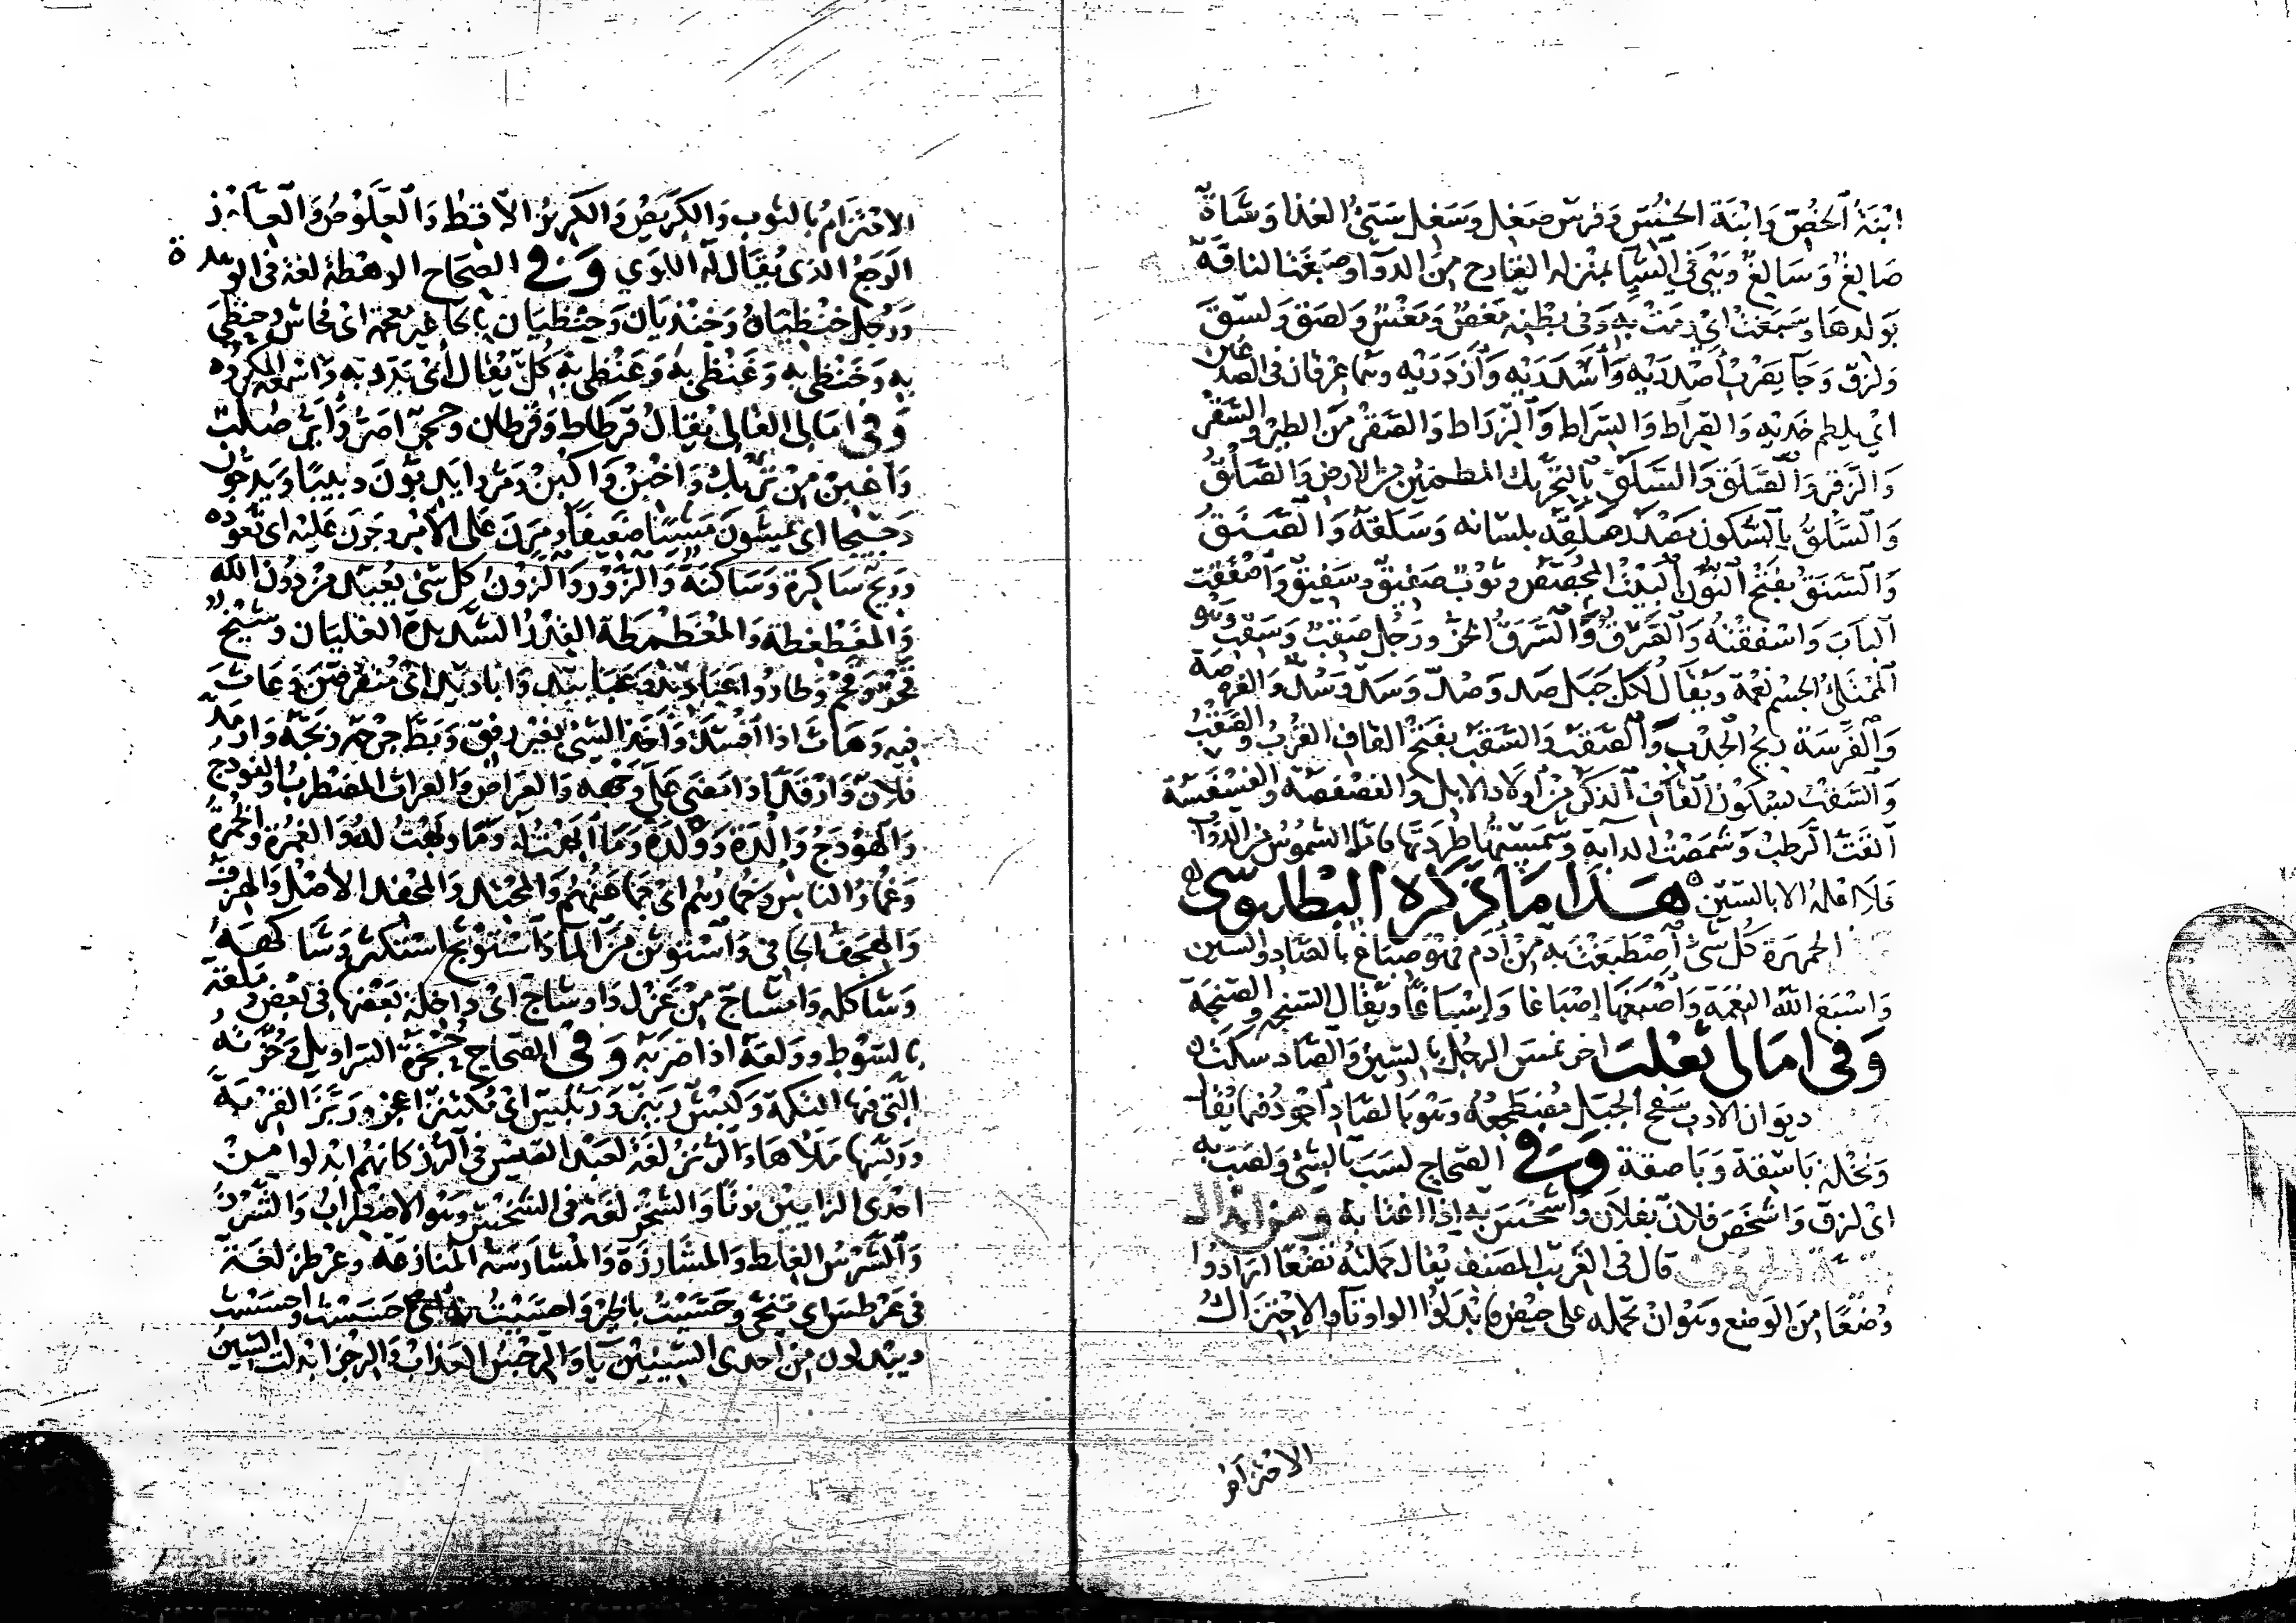 ابْنَةُ الخُصّ وَابْنَة الخُسّ وَفرس صَغِل وَسَغِل سَيّئُ الغذا وَشاة
صَالِغ وَسَالِغ وَهي في الشيا بمنزله القارح من الدوَآب وصَبَغَت الناقة
بولدهَا وَسَبَغَت اي رمَتْ به وَفى بطنِه مَغصٌ وَمَغسٌ وَلصق وَلسق
وَلزق وَجَآ يَضربُ أصْدَرَيْه وَأَسْدَرَيْه وَأزدَرَيْه وهما عرقان فى الصدغين
اي يلطم خديْهِ وَالصِراط وَالسِراط وَالزراط وَالصَقر مِنَ الطير وَالسَّقر
وَالزَقر وَالصَلَق وَالسَلَق بالتحْريك المطمئن من الارض وَالصَلْقُ
وَالسَّلْقُ بالسُّكون مصْدر صَلَقه بلسَانه وَسَلقهُ وَالصَنَقُ
وَالسَنَقُ بفتح النون البَيْتُ المُجصص وَثوْبٌ صَفيقٌ وَسَفيقٌ وَأصْفَقت
البابَ وَاسْفَقْتهُ وَالصَّرَقُ وَالسَرَقُ الحَرير وَرَجُل صَقبٌ وَسَقبٌ وَهو
المُمْتلئُ الجسْم نعْمة وَيقَالُ لكل جَبَل صَد وَصُدّ وَسَد وَسُدّ وَالفرصَة
وَالفَرْسَة ريحُ الحدْبِ وَالصَقَب وَالسَقَب بفتح القاف القُرْبُ وَالصَقْبُ
وَالسَقْبُ بسكون القَاف الذكَرُ منْ أولاد الابل وَالفصْفصَة وَالفسْفسَة
القتّ الرَطب وَشَمَصْت الدابة وَشَمَسْتها طَرَدتها فامَّا الشموُس من الدوَآب
فلا اقله الا بالسّين هَذا مَا ذَكرَه البطليوسي
الجمهرة كُل شئ اصْطَبَغتَ به مِنْ أدم فهوَ صِبَاغ بالصَّاد وَالسّين
وَاسْبَغ الله النعْمَة وَاصْبَغهَا إصْبَاغا وَإسْبَاغاً وَيقَال السَّنجة وَالصَنجَة
وَفى امَالى ثعْلب اخرنمسَ الرجُل بالسّين وَالصَّاد سكت
ديوان الادب سَفح الجَبَل مُضْطجعُه وَهوَ بالصَاد أجْوَد فيما يُقال
وَنخْله بَاسقة وَبَاصقة وَفى الصحاح لَسَبَ بالشئ وَلصَبَ به
اىْ لزق وَاشخَصَ فلانٌ بفلان وَاشخَسَ به اذا اغتابهُ
قال فى الغَريب المصَنف يُقال حَملتهُ تُضْعًا ارَادُوا
وُضْعًا مِنَ الوَضع وَهوَ انْ تحْمله عَلى حَيْض فابْدَلوُا الواو تآ وَالاحْتزَاكُ
الاحْتزَامُ
الاحْتزَامُ بالثوب وَالكَرِيصُ وَالكَريزُ الاقط وَالعِلَّوْصُ وَالعِلَّوْز
الوَجَعُ الذى يُقَال لهُ اللوَي وَفى الصحَاح الوَهْطَة لغة فى الوَهْدة
وَرَجُل خنْظِيَانُ وَخنْذيَانٌ وَحِنْظِيَان بالحَاء غير معجمة اىْ فحّاش وَحنظى
به وَخَنظى به وَغَنْظى به وَعَنْظى به كُل يُقالُ اىْ ندّد به وَاسْمعه المكروُه
وَفى امَالى القالى يُقَالُ قرْطَاط وَقُرْطان وَحَجَرٌ اصَرّ وَأيَرّ صُلْب
وَاغبِن مِنْ ثوْبك وَاخبِن وَاكبن وَمَرُّوا يَدبّون دبيبًا وَيَدجُّون
دَجيجًا اى يمشُونَ مَشيًا ضعيفًا وَمَرَنَ عَلى الامْر وَجَرَنَ عَليْه اى تعوّده
وَريح سَاكرة وَسَاكنة وَالزُور وَالزون كُل شئ يُعبَد منْ دُون الله
وَالمغَطْغِطَة وَالمغَطْمِطة القِدْرُ الشَّديدة الغليَان وَشيْخ
قَحْر وَقَحْم وَطارُوا عَبَادِيدَ وَعَبَابيد وَابَاديد اىْ متفرّقين وَعَاث
فيه وَهَاث اذا افْسَدَ وَأخَذ الشئ بغَيْر رفق وَبَطَّ جُرْحَه وَبَجّه وَارمَدّ
فُلانٌ وَارْقَدّ اذا مَضَى عَلى وَجْهه وَالعَرَّاص وَالعرات المضْطربُ وَالفوْدَجُ
وَالهَوْدَجُ وَإلْدَة وَوِلْدَة وَمَا ابَهْتُ لهُ وَمَا وَبهْتُ لهُ وَالغُمْرَة وَالخُمْرَةُ
وَغُمَارُ الناس وَخُمَارُهُم اىْ جَمَاعَتُهُم وَالمَحْتِد وَالمَحْفِد الاصْل وَالهِزَفّ
وَالهِجَفّ الجَافى وَاسْتَوثن مِنَ المال وَاسْتَوثج اسْتكثر وَشَاكَهَهُ
وَشاكله وَامشاج مِنْ غَزْل وَاوشاج اىْ داخلة بَعْضها فى بَعْض وَمَلَقهُ
بالسَّوْط وَوَلقَهُ اذا ضَرَبهُ وَفى الصحَاح حُجْزة السَّرَاويل وَحُزّتهُ
التى فيهَا التكّة وَكبْش رَبيزٌ وَرَبيس اىْ مكتنز اعْجَر وَرَبَّزَ القرْبة
وَرَبّسَها مَلأهَا وَالرُنْز لغة لعَبْد القيْس فى الرُّز كانهم ابْدلوا مِنْ
احْدى الزايَيْن نونًا وَالشخْز لغَة فى الشخْس وَهوَ الاضْطرابُ وَالشَّرْزُ
وَالشَّرْسُ الغلظ وَالمشَارزَة وَالمشارسَة المنازعَة وَعرْطز لغة
فى عَرْطس اى تنحّى وَحَسَيْتُ بالخبر وَاحْسَيْتُ به اىْ حسَسْت وَاحسَسْت
وَيبْدلون مِنْ احدى السّينيْن يَآ وَالرّجْسُ العَذابُ وَالرجْز ابْدلت السّينُ